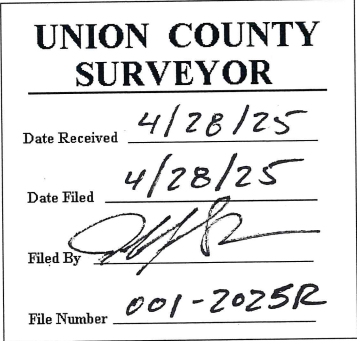 UNION COUNTY
SURVEYOR
Date Received 4/28/25
Date Filed 4/28/25
Filed By
File Number 001-2025R